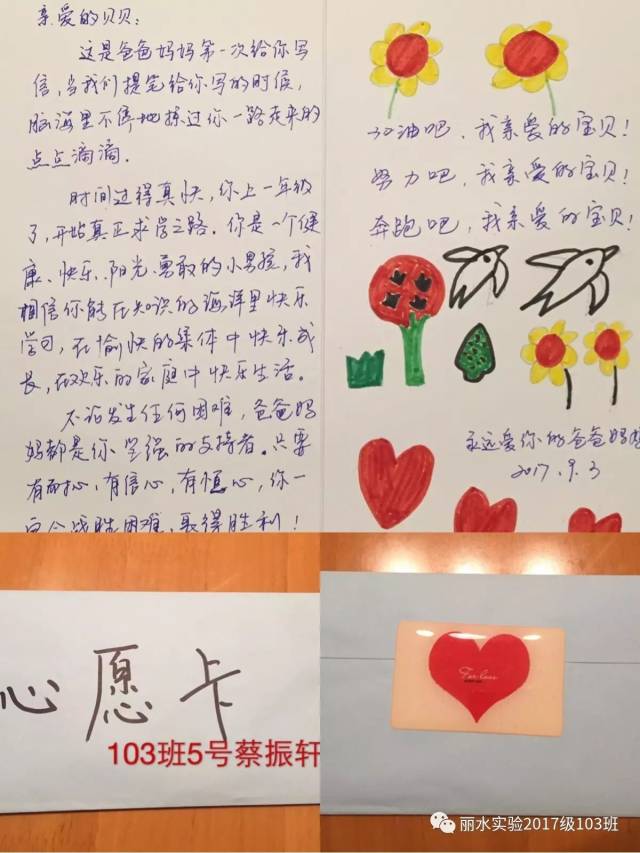 亲爱的贝贝:
这是爸爸妈妈第一次给你写
信,当我们提笔给你写的时候,
脑海里不停地掠过你一路走来的
点点滴滴.
时间过得真快,你上一年级
了,开始真正求学之路.你是一个健
康、快乐、阳光、勇敢的小男孩,我
相信你能在知识的海洋里快乐
学习,在愉快的集体中快乐成
长,在欢乐的家庭中快乐生活。
不论发生任何困难,爸爸妈
妈都是你坚强的支持者。只要
有耐心,有信心,有恒心,你一
定会战胜困难,取得胜利!
加油吧、我亲爱的宝贝!
努力吧,我亲爱的宝贝!
奔跑吧,我亲爱的宝贝!
永远爱你的爸爸妈妈
2017.9.3
心愿卡
103班5号蔡振轩
For love
丽水实验2017级103班